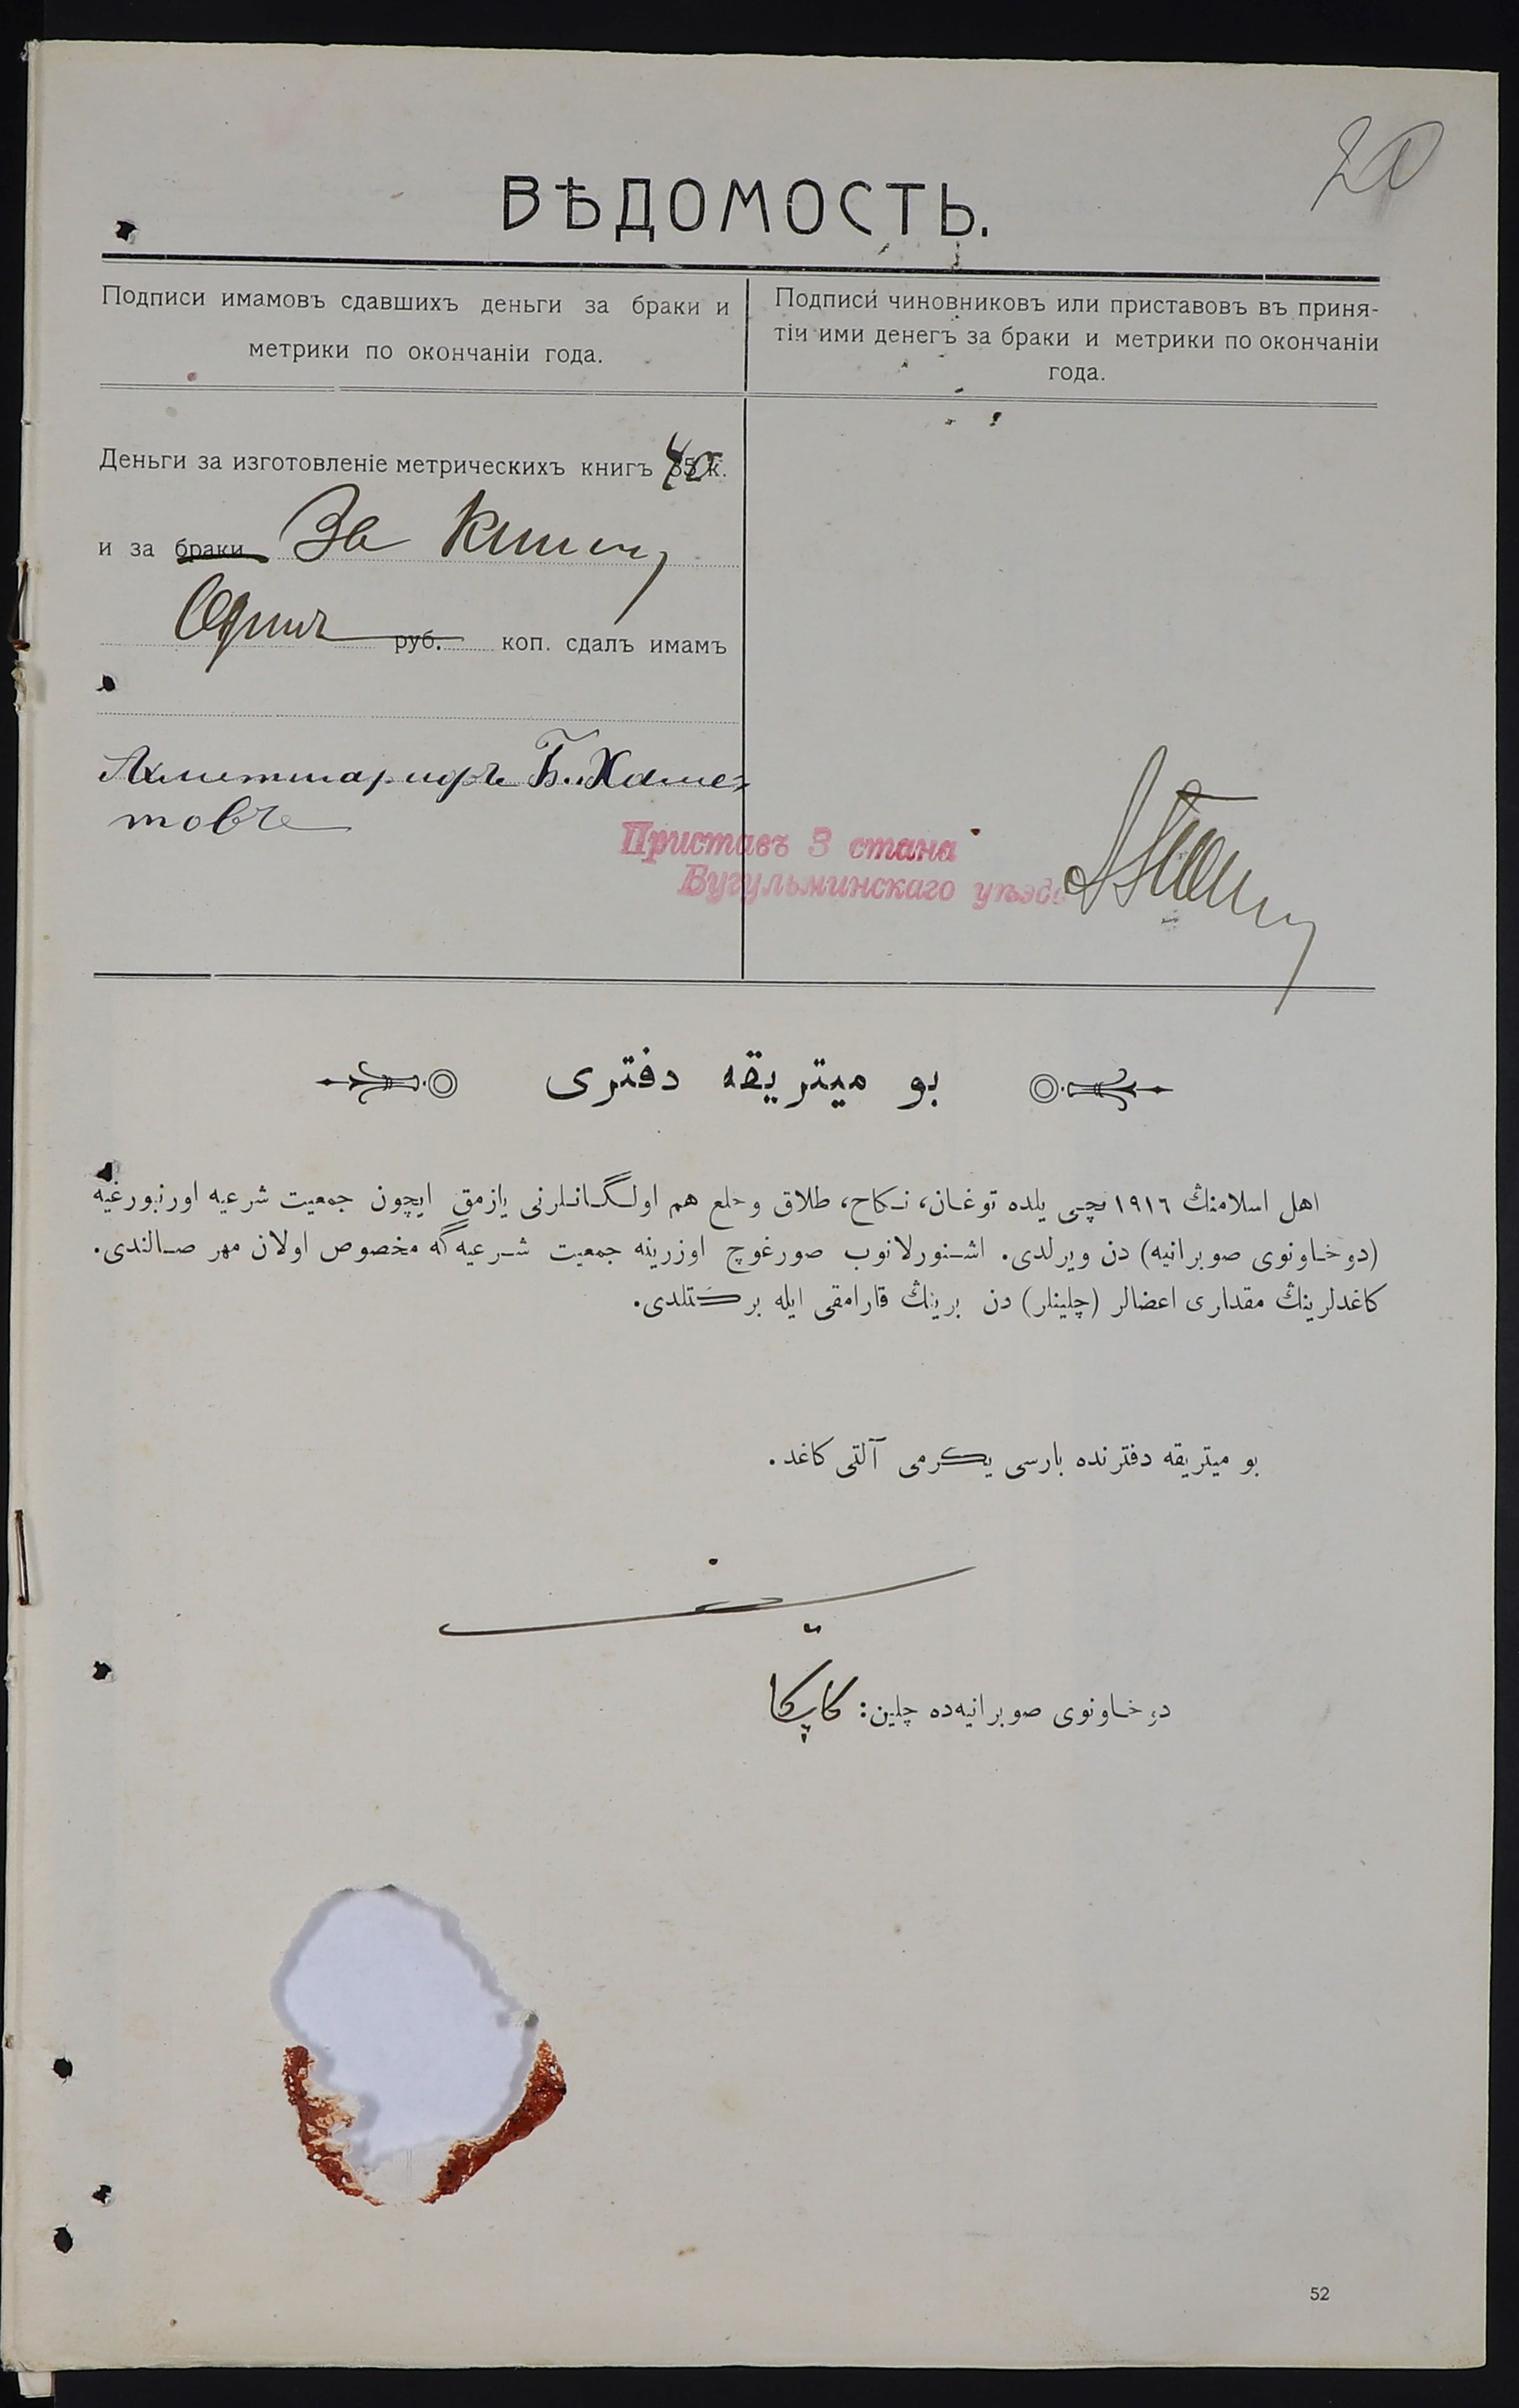 20
ВѢДОМОСТЬ.
Подписи имамовъ сдавшихъ деньги за браки и
метрики по окончаніи года.
Подписи чиновниковъ или приставовъ въ приня-
тіи ими денегъ за браки и метрики по окончаніи
года.
Деньги за изготовленіе метрическихъ книгъ 35 к. 40
и за браки За книгу
Одинъ руб. коп. сдалъ имамъ
Ахметшарифъ Б. Хаме-
товъ
Приставъ 3 стана
Бугульминскаго уѣзда
بو ميتريقه دفترى
اهل اسلامنڭ ١٩١٦ نچى يلده توغان، نكاح، طلاق وخلع هم اولگانلرنى يازمق ايچون جمعيت شرعيه اورنبورغيه
(دوخاونوى صوبرانيه) دن ويرلدى. اشنورلانوب صورغوچ اوزرينه جمعيت شرعيه گه مخصوص اولان مهر صالندى.
كاغدلرينڭ مقدارى اعضالر (چلينلر) دن برينڭ قارامقى ايله بركتلدى.
بو ميتريقه دفترنده بارسى يكرمى آلتى كاغد.
دوخاونوى صوبرانيه‌ده چلين: كاپكا
52